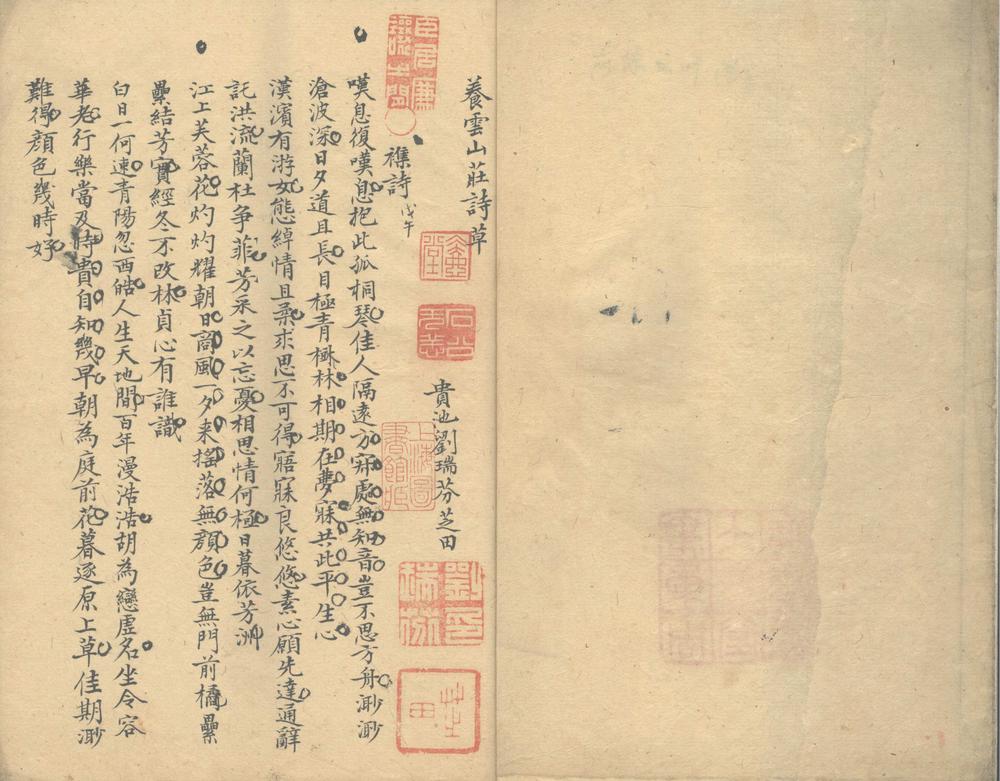 養雲山莊詩草
貴池劉瑞芬芝田
襍詩戊午
嘆息復嘆息抱此孤桐琴佳人隔遠方寂處無知音豈不思方舟渺渺
滄波深日夕道且長目極青楓林相期在夢寐共此平生心
漢濱有游女態綽情且柔求思不可得寤寐良悠悠素心願先達通辭
託洪流蘭杜爭菲芳采之以忘憂相思情何極日暮依芳洲
江上芙蓉花灼灼耀朝日商風一夕来搖落無顏色豈無門前橘纍
纍結芳實經冬不改林貞心有誰識
白日一何速青陽忽西皓人生天地間百年漫浩浩胡為戀虛名坐令容
華老行樂當及時貴自知幾早朝為庭前花暮逐原上草佳期渺
難得顏色幾時好
上海圖書館藏
劉印瑞芬
芝田